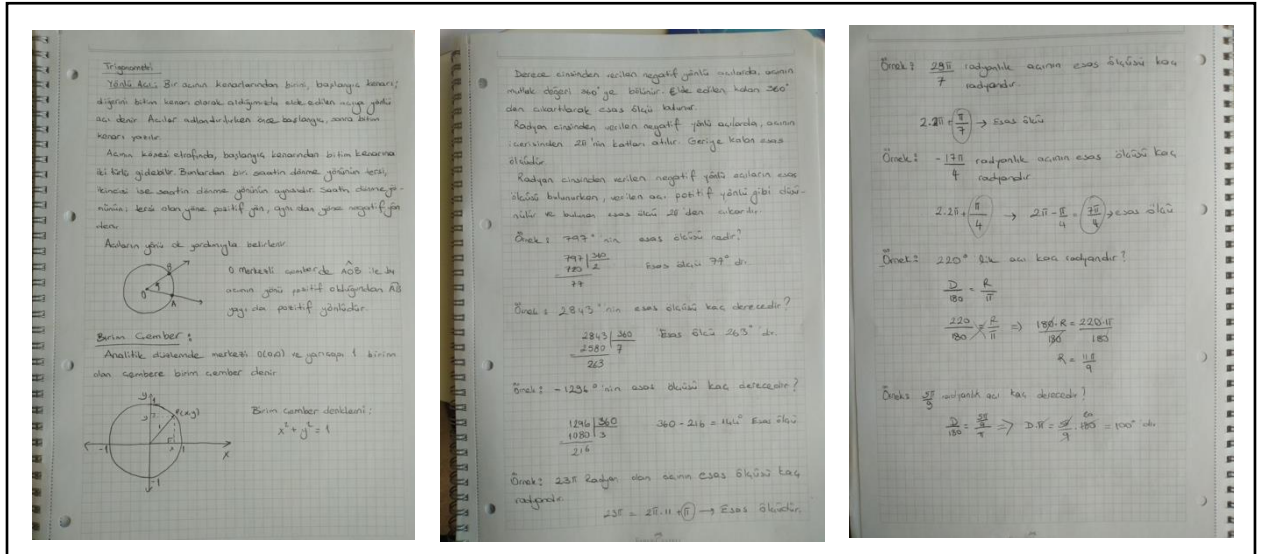 Trigonometri
Yönlü Açı: Bir açının kenarlarından birini, başlangıç kenarı;
diğerini bitim kenarı olarak aldığımızda elde edilen açıya yönlü
açı denir. Açılar adlandırılırken önce başlangıç, sonra bitim
kenarı yazılır.
Açının köşesi etrafında, başlangıç kenarından bitim kenarına
iki türlü gidebilir. Bunlardan biri saatin dönme yönünün tersi,
ikincisi ise saatin dönme yönünün aynısıdır. Saatin dönme yö-
nünün; tersi olan yöne pozitif yön, aynı olan yöne negatif yön
denir.
Açıların yönü ok yardımıyla belirlenir.
B
O
A
O merkezli çemberde AÔB ile bu
açının yönü pozitif olduğundan AB
yayı da pozitif yönlüdür.
Birim Çember:
Analitik düzlemde merkezi O(0,0) ve yarıçapı 1 birim
olan çembere birim çember denir.
y
1
P(x,y)
1
-1
x
1
x
-1
Birim çember denklemi;
x² + y² = 1
Derece cinsinden verilen negatif yönlü açılarda, açının
mutlak değeri 360°'ye bölünür. Elde edilen kalan 360°
den çıkartılarak esas ölçü bulunur.
Radyan cinsinden verilen negatif yönlü açılarda, açının
içerisinden 2π'nin katları atılır. Geriye kalan esas
ölçüdür.
Radyan cinsinden verilen negatif yönlü açıların esas
ölçüsü bulunurken, verilen açı potitif yönlü gibi düşü-
nülür ve bulunan esas ölçü 2π'den çıkarılır.
Örnek: 797°'nin esas ölçüsü nedir?
797 | 360
720 | 2
77
Esas ölçü 77° dir.
Örnek: 2843°'nin esas ölçüsü kaç derecedir?
2843 | 360
2580 | 7
263
Esas ölçü 263° dir.
Örnek: -1296°'nin esas ölçüsü kaç derecedir?
1296 | 360
1080 | 3
216
360 - 216 = 144° Esas ölçü
Örnek: 23π Radyan olan açının esas ölçüsü kaç
radyandır.
23π = 2π.11 + π → Esas ölçüdür.
Örnek: 29π/7 radyanlık açının esas ölçüsü kaç
radyandır.
2.2π + π/7 → Esas ölçü
Örnek: -17π/4 radyanlık açının esas ölçüsü kaç
radyandır
2.2π + π/4 → 2π - π/4 = 7π/4 → esas ölçü
Örnek: 220° lik açı kaç radyandır?
D/180 = R/π
220/180 = R/π => 180.R/180 = 220.π/180
R = 11π/9
Örnek: 5π/9 radyanlık açı kaç derecedir?
D/180 = 5π/9/π => D.π = 5π/9 . 180 = 100° dir.